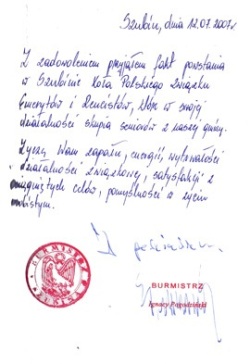 Szubin, dnia 12.07.2007r
Z zadowoleniem przyjąłem fakt powstania
w Szubinie Koła Polskiego Związku
Emerytów i Rencistów, które w swojej
działalności skupia seniorów z naszej gminy.
Życzę Wam zapału, energii, wytrwałości
działalności związkowej, satysfakcji z
osiągniętych celów, pomyślności w życiu
osobistym.
Z
BURMISTRZ
Ignacy Pogodziński